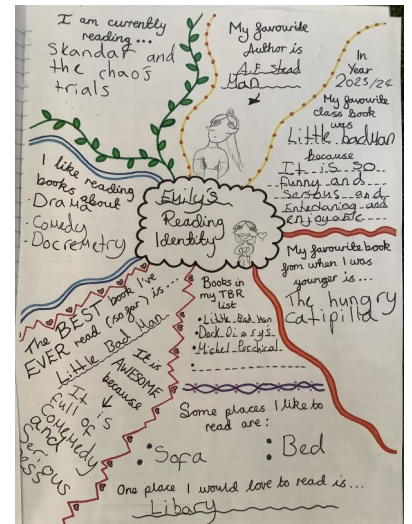 I am currently
reading ...
Skandar and
the chaos
trials
My favourite
Author is
A.F Stead
Man
In
Year
2023/24
My favourite
class book
was
Little badman
because
It is so
funny and
Serious and
and
enjoyable
I like reading
books about
· Drama
· Comedy
· Docremetry
Emily's
Reading
Identity
My favourite book
from when I was
younger is...
The hungry
Catipilla
The BEST book I've
EVER read (so far) is...
Little Bad Man
It is
AWESOME
because
It is
full of
Comemedy
and
Serious
ness
Books in
my TBR
list
· Little Bad Man
· Dork Diary's
· Michel
Some places I like to
read are:
Sofa
Bed
One place I would love to read is...
Libary